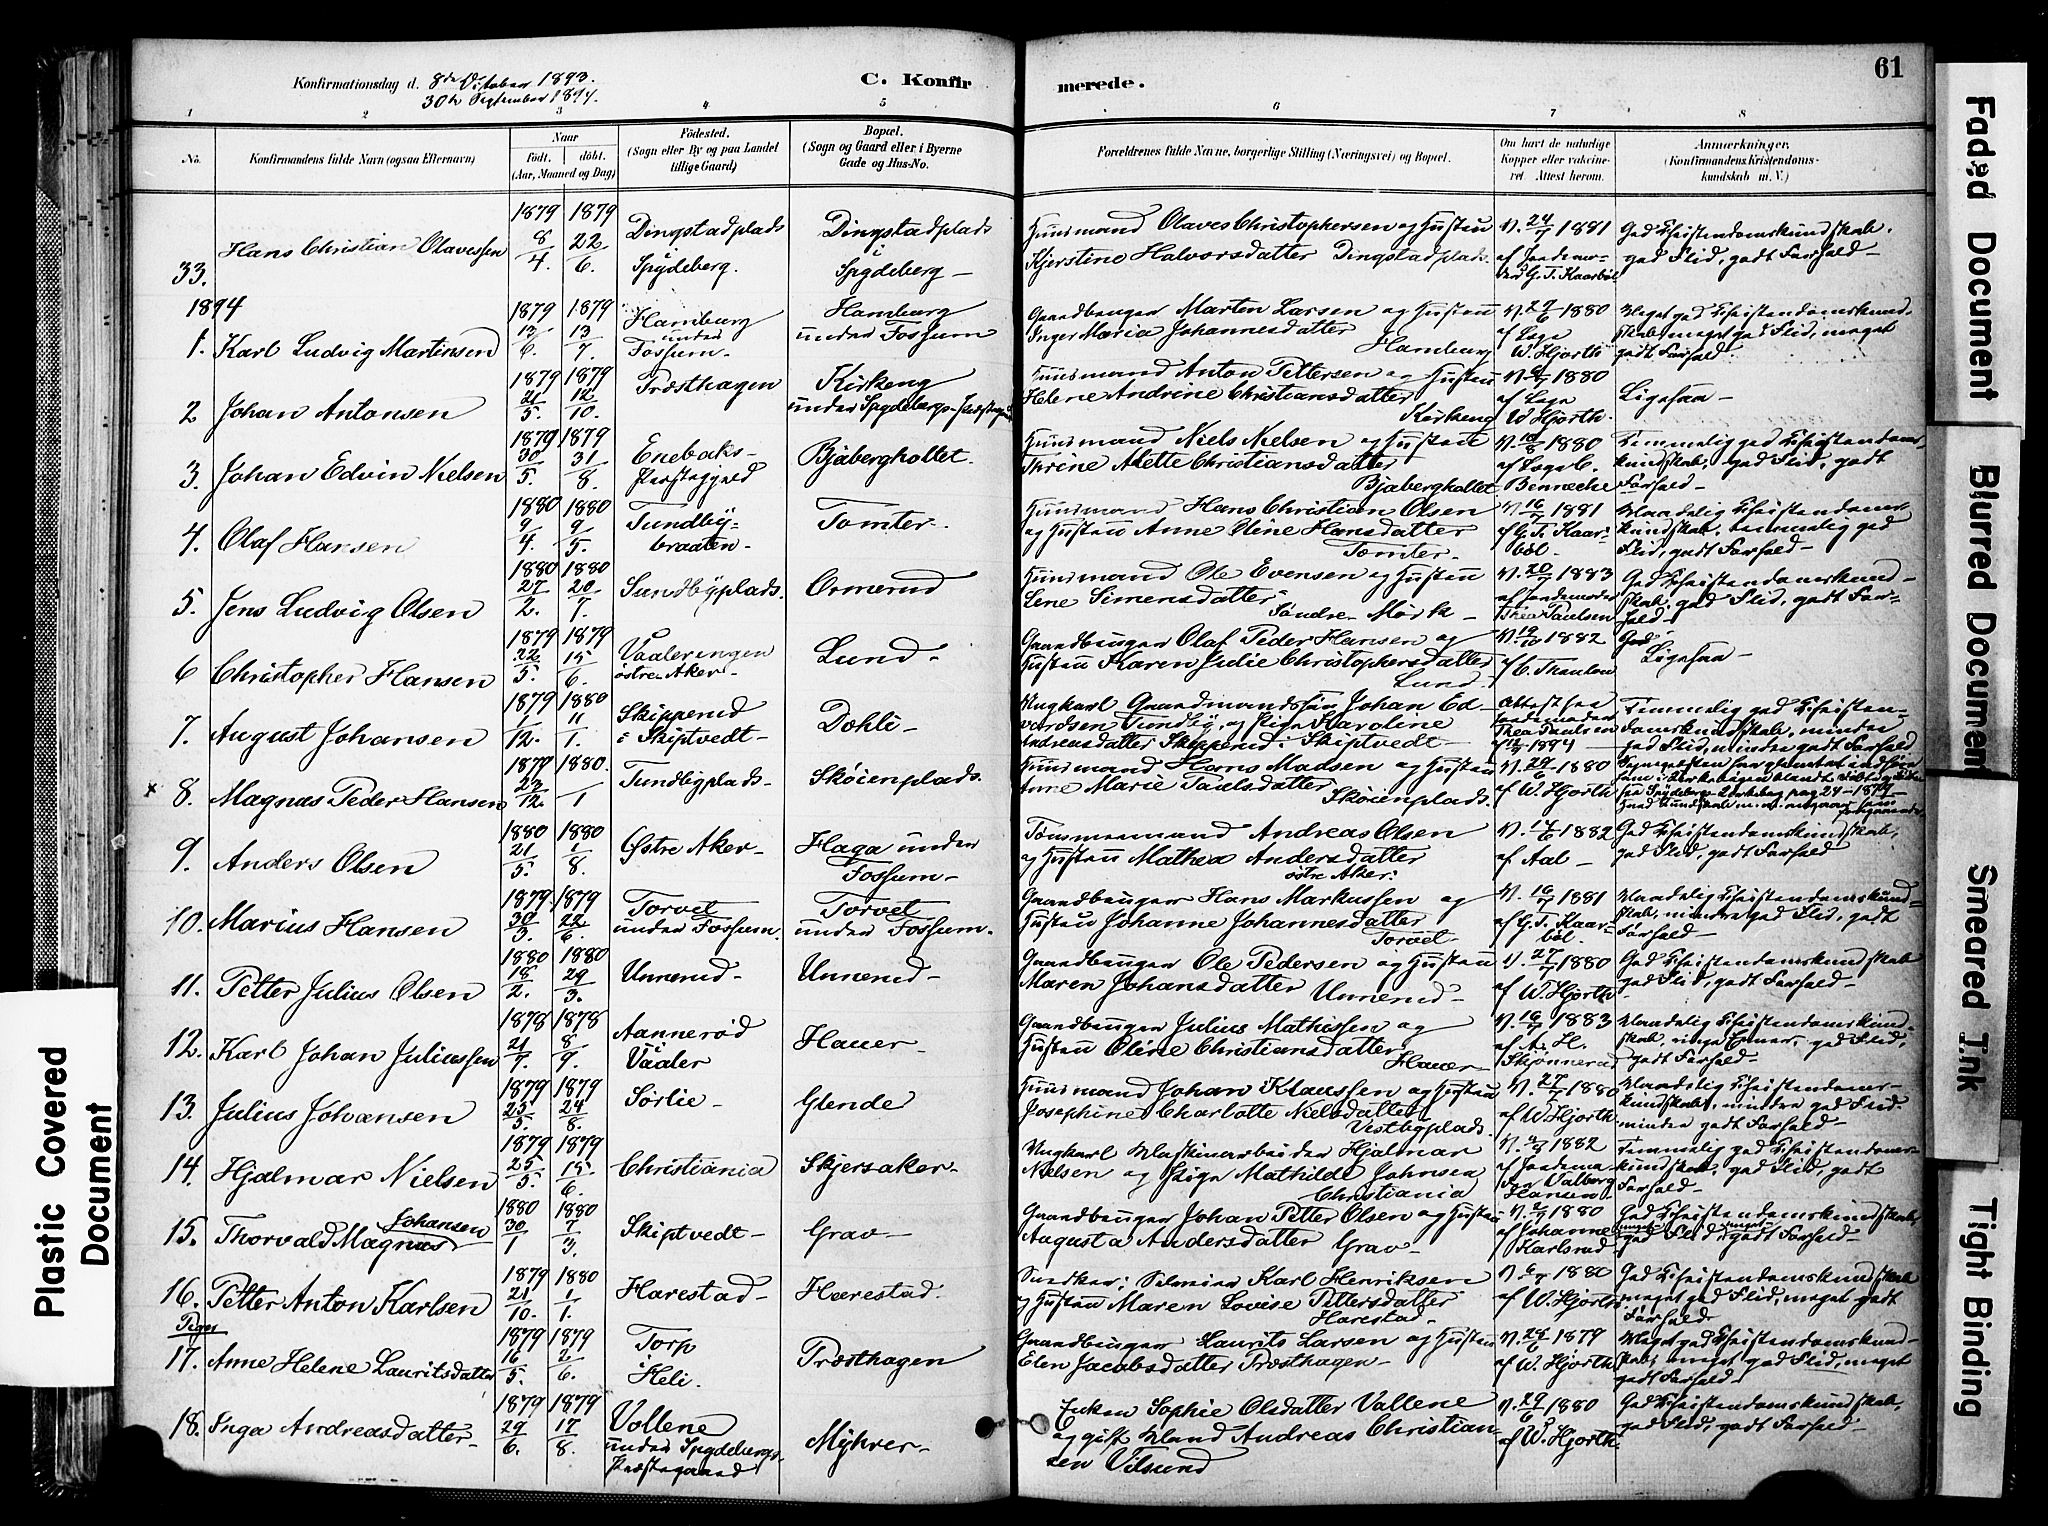 61
Konfirmationsdag d. 8de October 1893.
30te September 1894.
C. Konfirmerede.
1 2 3 4 5 6 7 8
No. Konfirmandens fulde Navn (ogsaa Efternavn)
Naar
født. døbt.
(Aar, Maaned og Dag)
Fødested.
(Sogn eller By og paa Landet
tillige Gaard)
Bopæl.
(Sogn og Gaard eller i Byerne
Gade og Hus-No.
Forældrenes fulde Navne, borgerlige Stilling (Næringsvei) og Bopæl.
Om havt de naturlige
Kopper eller vakcine-
ret. Attest herom.
Anmærkninger.
(Konfirmandens Kristendoms-
kundskab m. V.)
33. Hans Christian Olavessen 1879 8/4. 1879 22/6. Dingstadplads Spydeberg. Dingstadplads i Spydeberg –
Huusmand Olaves Christophersen og Hustru
Kjerstine Halvorsdatter Dingstadplads.
V. 24/7 1881 af Jordemoder G. T. Kaarbøl
God Christendomskundskab,
god Flid, godt Forhold –
1894
1. Karl Ludvig Martinsen 1879 13/6. 1879 13/7. Hamburg under Fossum – Hamburg under Fossum
Gaardbruger Marten Larsen og Hustru
Inger Maria Johannesdatter
Hamburg
1880 af Læge W. Hjorth
Meget god Christendomskund-
skab, meget god Flid, meget
godt Forhold –
2 Johan Antonsen 1879 21/5. 1879 12/10. Præsthagen Kirkeng under Spydebergs Præstegaard
Huusmand Anton Pettersen og Hustru
Helene Andrine Christiansdatter
Kirkeng
1880 af Læge W Hjorth.
Ligesaa –
3. Johan Edvin Nielsen 1879 30/5. 1879 31/8. Enebaks- Præstegjeld Bjaberghollet.
Huusmand Niels Nielsen og Hustru
Thrine Alette Christiansdatter
Bjaberghollet
V. 10/8 1880 af Læge C.
Temmelig god Christendoms-
kundskab, god Flid, godt
Forhold –
4. Olaf Hansen 1880 9/4. 1880 9/5. Tundby- braaten – Tomter.
Huusmand Hans Christian Olsen
og Hustru Anne Oline Hansdatter
Tomter –
V. 16/7 1881 af G. T. Kaar- bøl –
Maadelig Christendoms-
kundskab, temmelig god
Flid, godt Forhold –
5. Jens Ludvig Olsen 1880 27/2. 1880 20/7. Sundbyplads. Ormerud
Huusmand Ole Evensen og Hustru
Lene Simensdatter
Søndre Mørk –
V. 20/7 1883 af Jordemoder Thea Paulsen
God Christendomskund-
skab, god Flid, godt For-
hold –
6 Christopher Hansen 1879 22/5. 1879 15/6. Vaaleringen østre Aker – Lund –
Gaardbruger Olaf Peder Hansen og
Hustru Karen Julie Christophersdatter
Lund –
V. 12/10 1882
Ligesaa –
7. August Johansen 1879 1/12. 1880 11/1. Skipperud i Skiptvedt – Dohli –
Ungkarl Gaardmandssøn Johan Ed-
vardsen Tundby og Pige Karoline
Andreasdatter Skipperud i Skiptvedt –
Attest fra Jordemoder Thea Paulsen 1894
Temmelig god Christen-
domskundskab, mindre
god Flid, mindre godt Forhold
x 8. Magnus Peder Hansen 23/12. 1880. 1 Tundbyplads – Skøienplads.
Huusmand Hans Madsen og Hustru
Anne Marie Paulsdatter
Skøienplads.
1880 af W. Hjorth
9. Anders Olsen 1880 21/5. 1880 1/8. Østre Aker – Haga under Fossum –
Tømmermand Andreas Olsen
og Hustru Mathea Andersdatter
østre Aker.
V. 14/6 1882 af Aal –
God Christendomskundskab,
god Flid, godt Forhold
10. Marius Hansen 1879. 30/3. 1879 22/6. Torvet under Fossum. Torvet under Fossum.
Gaardbruger Hans Markussen og
Hustru Johanne Johannesdatter
Torvet –
V. 16/7 1881 af G. T. Kaar- bøl.
Maadelig Christendomskund-
skab, mindre god Flid, godt
Forhold –
11. Petter Julius Olsen 1880 18/2. 1880 29/3. Unnerud – Unnerud –
Gaardbruger Ole Pedersen og Hustru
Maren Johansdatter
Unnerud –
V. 27/7 1880 af W. Hjorth.
God Christendomskundskab
god Flid, godt Forhold –
12. Karl Johan Juliussen 1878 21/7. 1878 8/9. Aannerød Vaaler Hauer –
Gaardbruger Julius Mathissen og
Hustru Oline Christiansdatter
Hauer –
V. 16/7 1883 af A. H. Skjønnerud
Maadelig Christendomskund-
skab, ringe Evner, god Flid,
godt Forhold –
13. Julius Johansen 1879 23/5. 1879 24/8. Sørlie – Glende
Huusmand Johan Klaussen og Hustru
Josephine Charlotte Nelsdatter
Vestbyplads.
V. 27/7 1880 af W. Hjorth.
Maadelig Christendoms-
kundskab, mindre god Flid.
mindre godt Forhold –
14. Hjalmar Nielsen 1879 25/5. 1879 15/6. Christiania Skjersaker –
Ungkarl Maskinarbeider Hjalmar
Nielsen og Pige Mathilde Johnsen
Christiania
1882 af Jordemo- Valborg Hansen –
Temmelig god Christendoms-
kundskab, god Flid, godt
Forhold –
15. Thorvald Magnus Johansen 1880 30/1 1880 7/3. Skiptvedt – Grav –
Gaardbruger Johan Petter Olsen og Hustru
Augusta Andersdatter Grav –
1880 af Johanne Karlsrud
God Christendomskundskab,
meget god Flid, meget godt Forhold –
16. Petter Anton Karlsen 1879 21/10. 1880 1/1. Harestad – Harestad.
Karl Henriksen
og Hustru Maren Lovise Pettersdatter
Harestad –
1880 af W. Hjorth.
God Christendomskundskab
meget god Flid, meget godt
Forhold
Piger
17. Anne Helene Lauritsdatter 1879 16/5. 1879 2/6. Torp Heli. Præsthagen
Gaardbruger Laurits Larsen og Hustru
Elen Jacobsdatter Præsthagen –
1879 af W. Hjorth
Meget god Christendomskund-
skab, meget god Flid, meget
godt Forhold –
18. Inga Andreasdatter – 1879 29/6. 1879 17/8. Vollene under Spydebergs Præstegaard Myhrer –
Enken Sophie Olsdatter Vollene
og gift Mand Andreas Christian-
sen Vilsund
1880 af W. Hjorth
God Christendomskundskab,
god Flid, godt Forhold –
Plastic Covered
Document
Faded Document
Blurred Document
Smeared Ink
Tight Binding